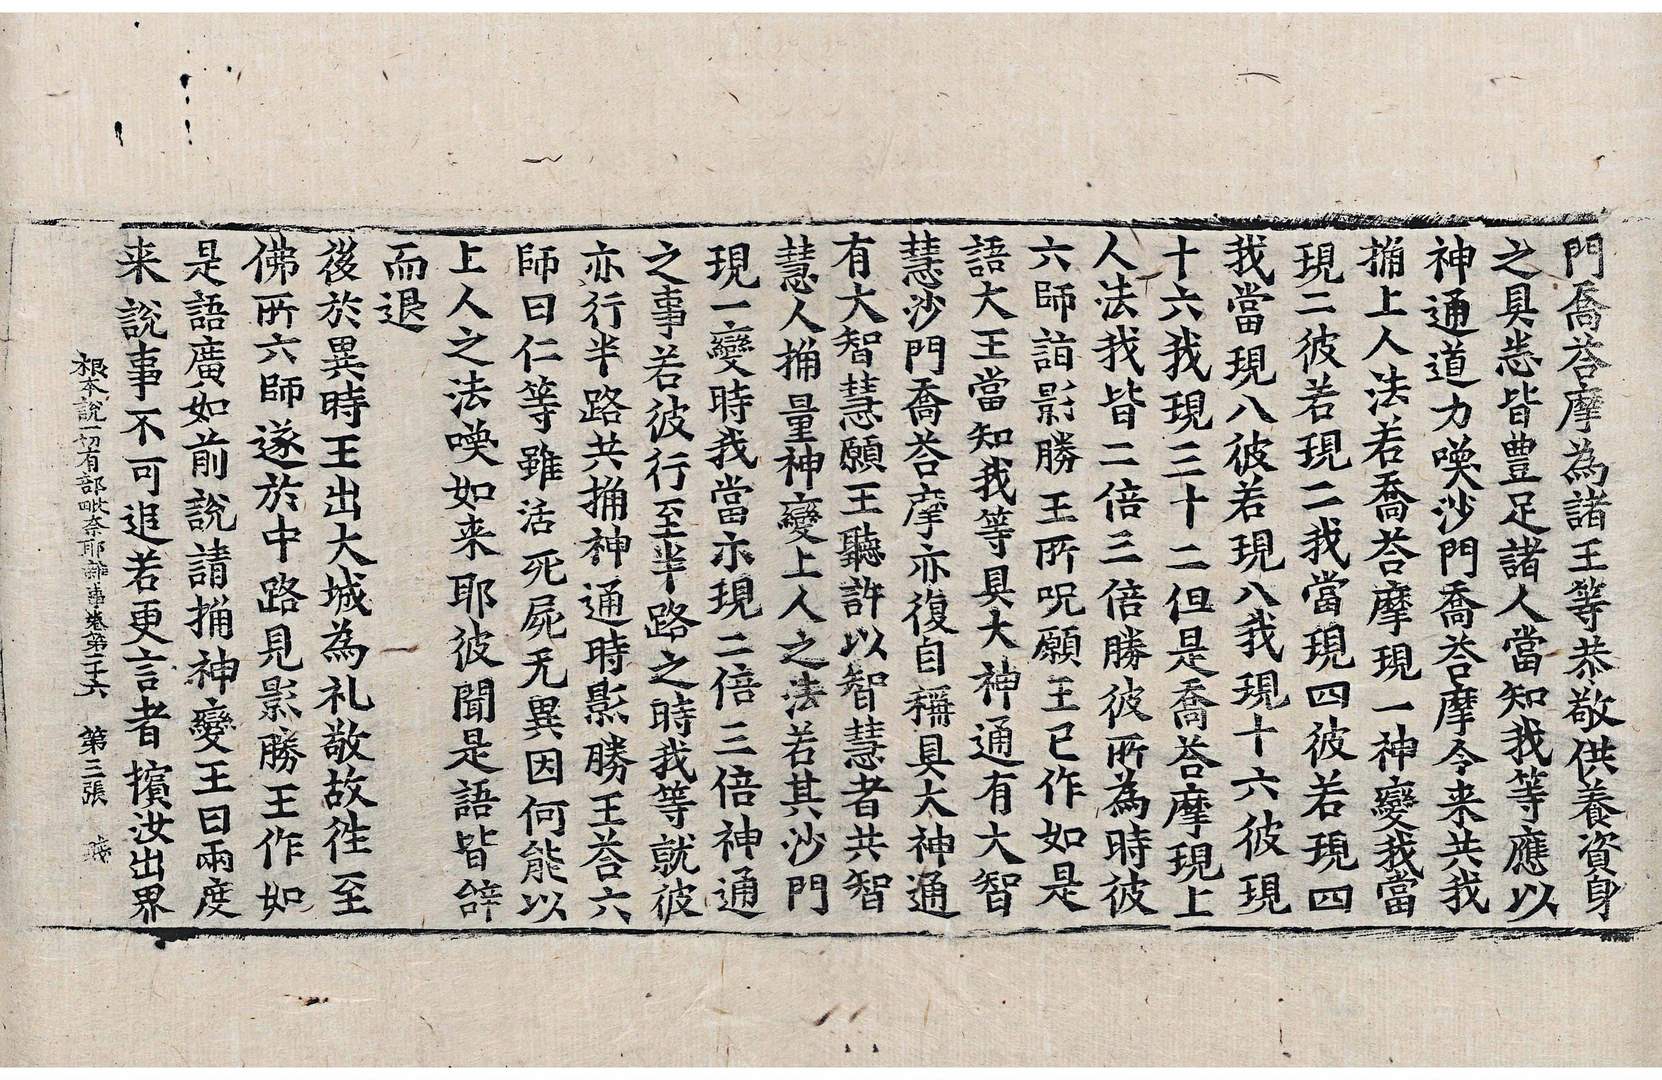 門喬荅摩為諸王等恭敬供養資身
之具悉皆豊足諸人當知我等應以
神通道力喚沙門喬荅摩令来共我
捔上人法若喬荅摩現一神變我當
現二彼若現二我當現四彼若現四
我當現八彼若現八我現十六彼現
十六我現三十二但是喬荅摩現上
人法我皆二倍三倍勝彼所為時彼
六師詣影勝王所呪願王已作如是
語大王當知我等具大神通有大智
慧沙門喬荅摩亦復自稱具大神通
有大智慧願王聽許以智慧者共智
慧人捔量神變上人之法若其沙門
現一變時我當亦現二倍三倍神通
之事若彼行至半路之時我等就彼
亦行半路共捔神通時影勝王荅六
師曰仁等雖活死屍无異因何能以
上人之法喚如来耶彼聞是語皆辞
而退
後於異時王出大城為礼敬故往至
佛所六師遂於中路見影勝王作如
是語廣如前說請捔神變王曰兩度
来說事不可追若更言者擯汝出界
根本說一切有部毗奈耶雜事卷第二十六 第三張